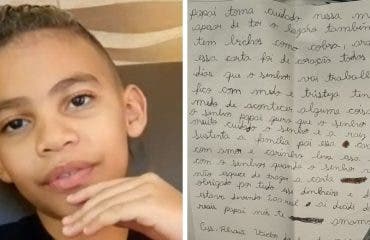 papai toma cuidado nessa m
apesar de ter o lazaro também
tem bichos como cobra, ara
essa carta foi de coração todos
dias que o senhor vai trabalh
fico com medo e tristeza ten
medo de acontecer alguma coisa
o senhor papai quero que o senhor
muito cuidado o senhor e a raiz
sustenta a família pai essa
com amor e carinho leva essa
com o senhor quando o senhor
não esqueça de trazer a carta
obrigado por tudo esse dinheiro e d
estava devendo
reais papai nós te amamos